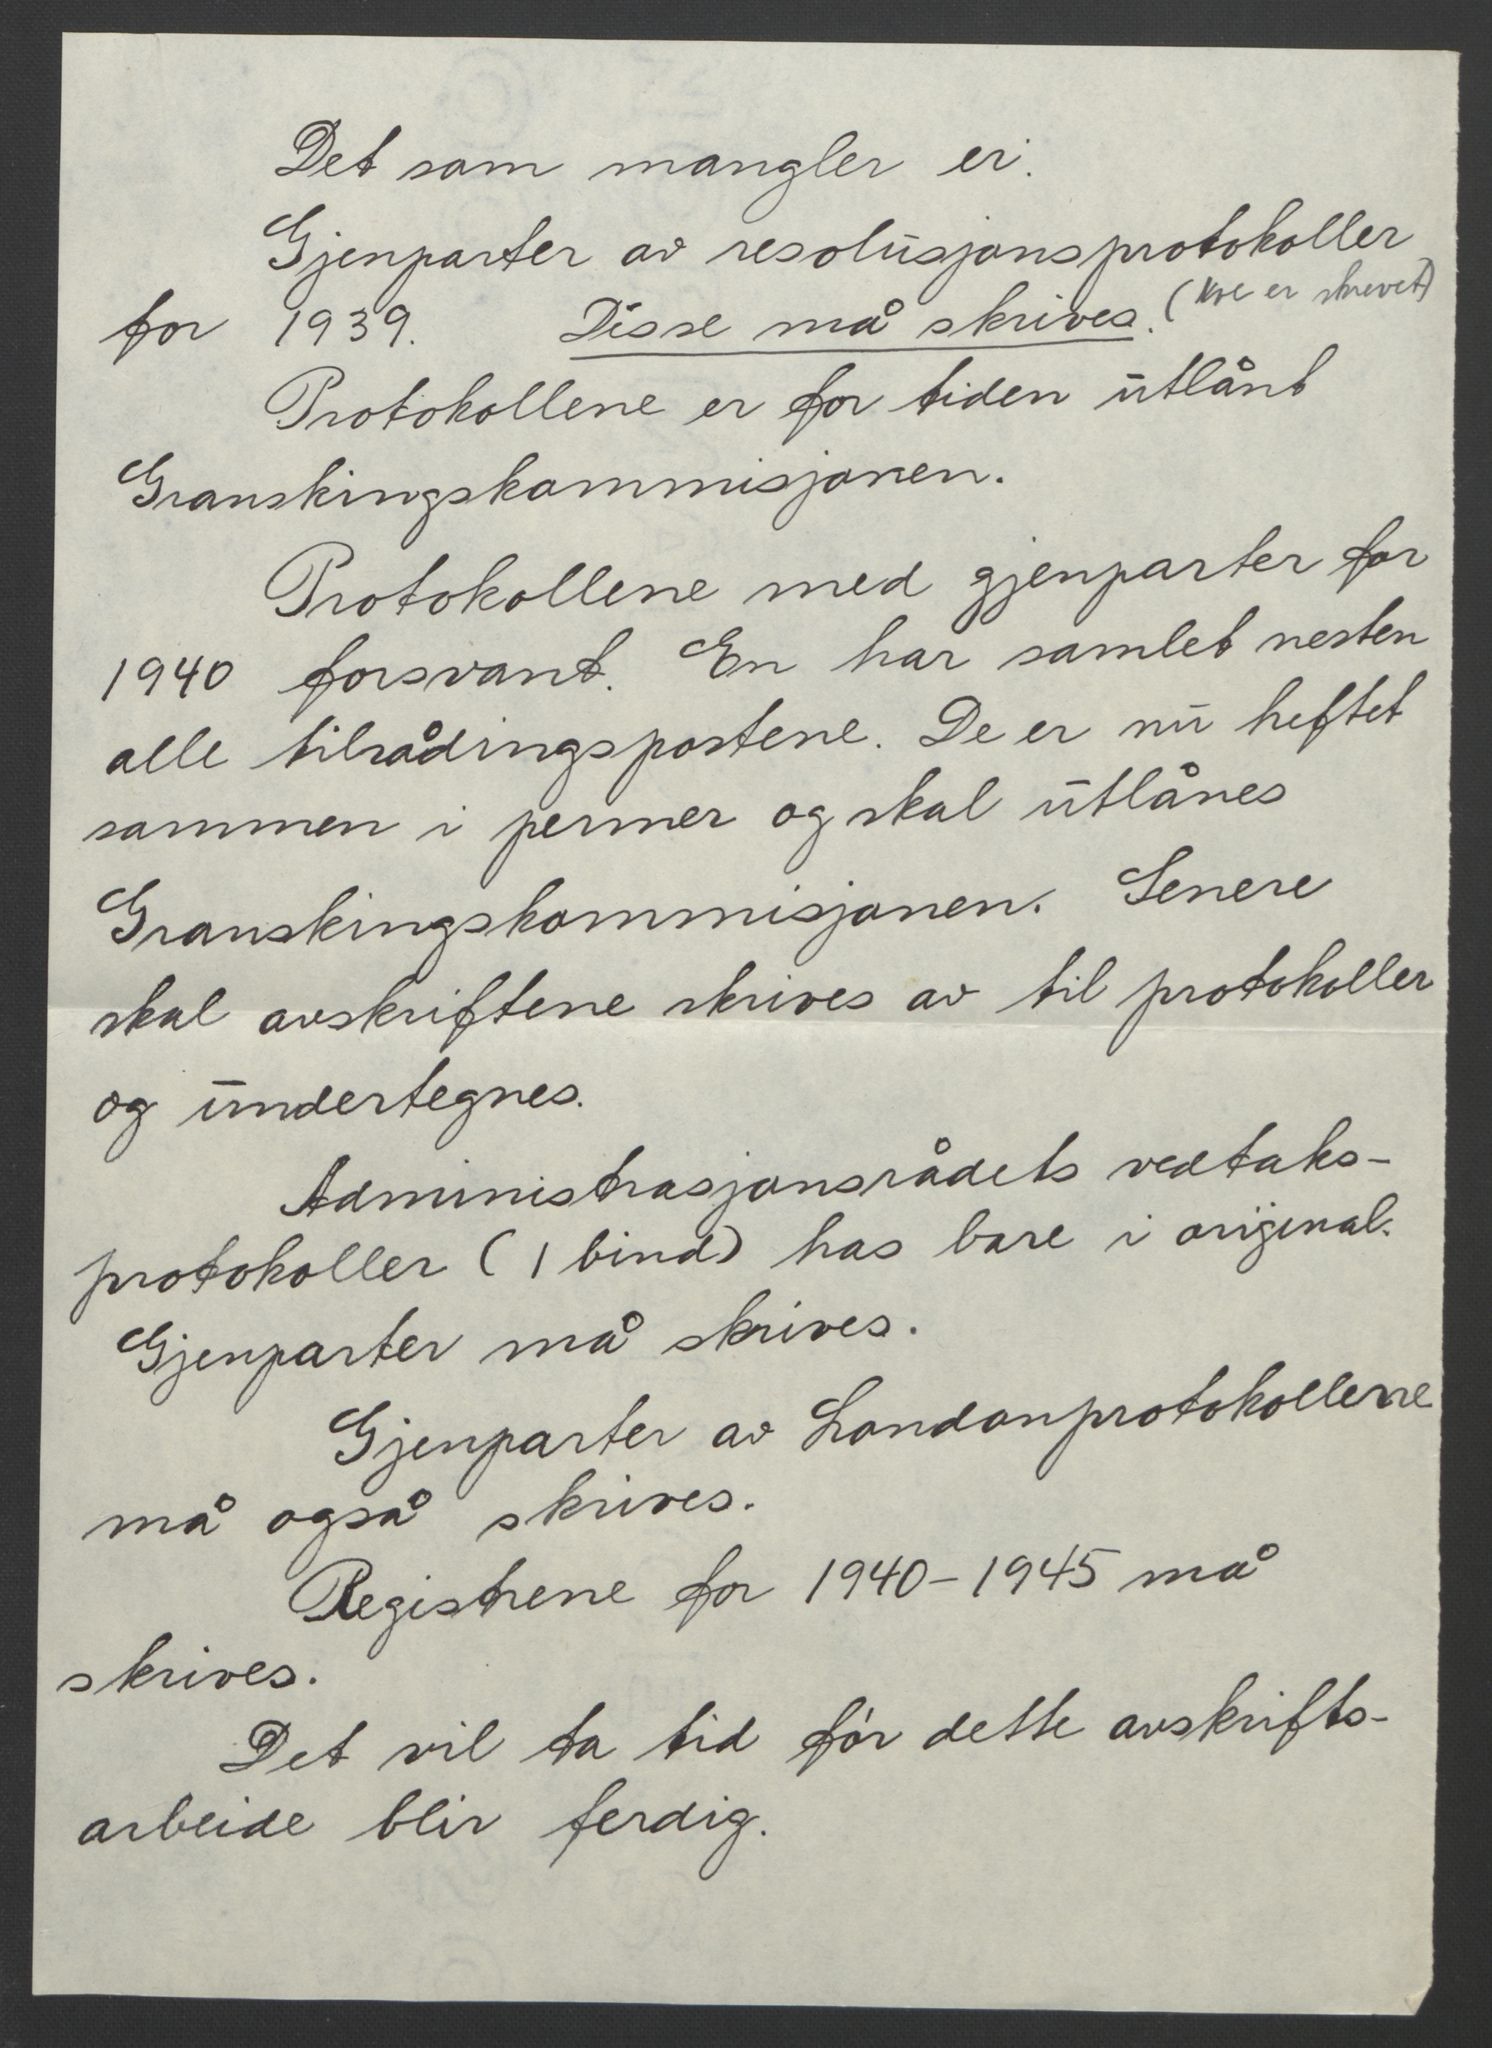 Det som mangler er:
Gjenparter av resolusjonsprotokoller
for 1939. Disse må skrives. ( er skrevet)
Protokollene er for tiden utlånt
Granskingskommisjonen.
Protokollene med gjenparter for
1940 forsvant. En har samlet nesten
alle tilrådingspostene. De er nu heftet
sammen i permer og skal utlånes
Granskingskommisjonen. Senere
skal avskriftene skrives av til protokoller
og undertegnes.
Administrasjonsrådets vedtaks-
protokoller (1 bind) has bare i original.
Gjenparter må skrives.
Gjenparter av Londonprotokollene
må også skrives.
Registrene for 1940-1945 må
skrives.
Det vil ta tid før dette avskrifts-
arbeide blir ferdig.